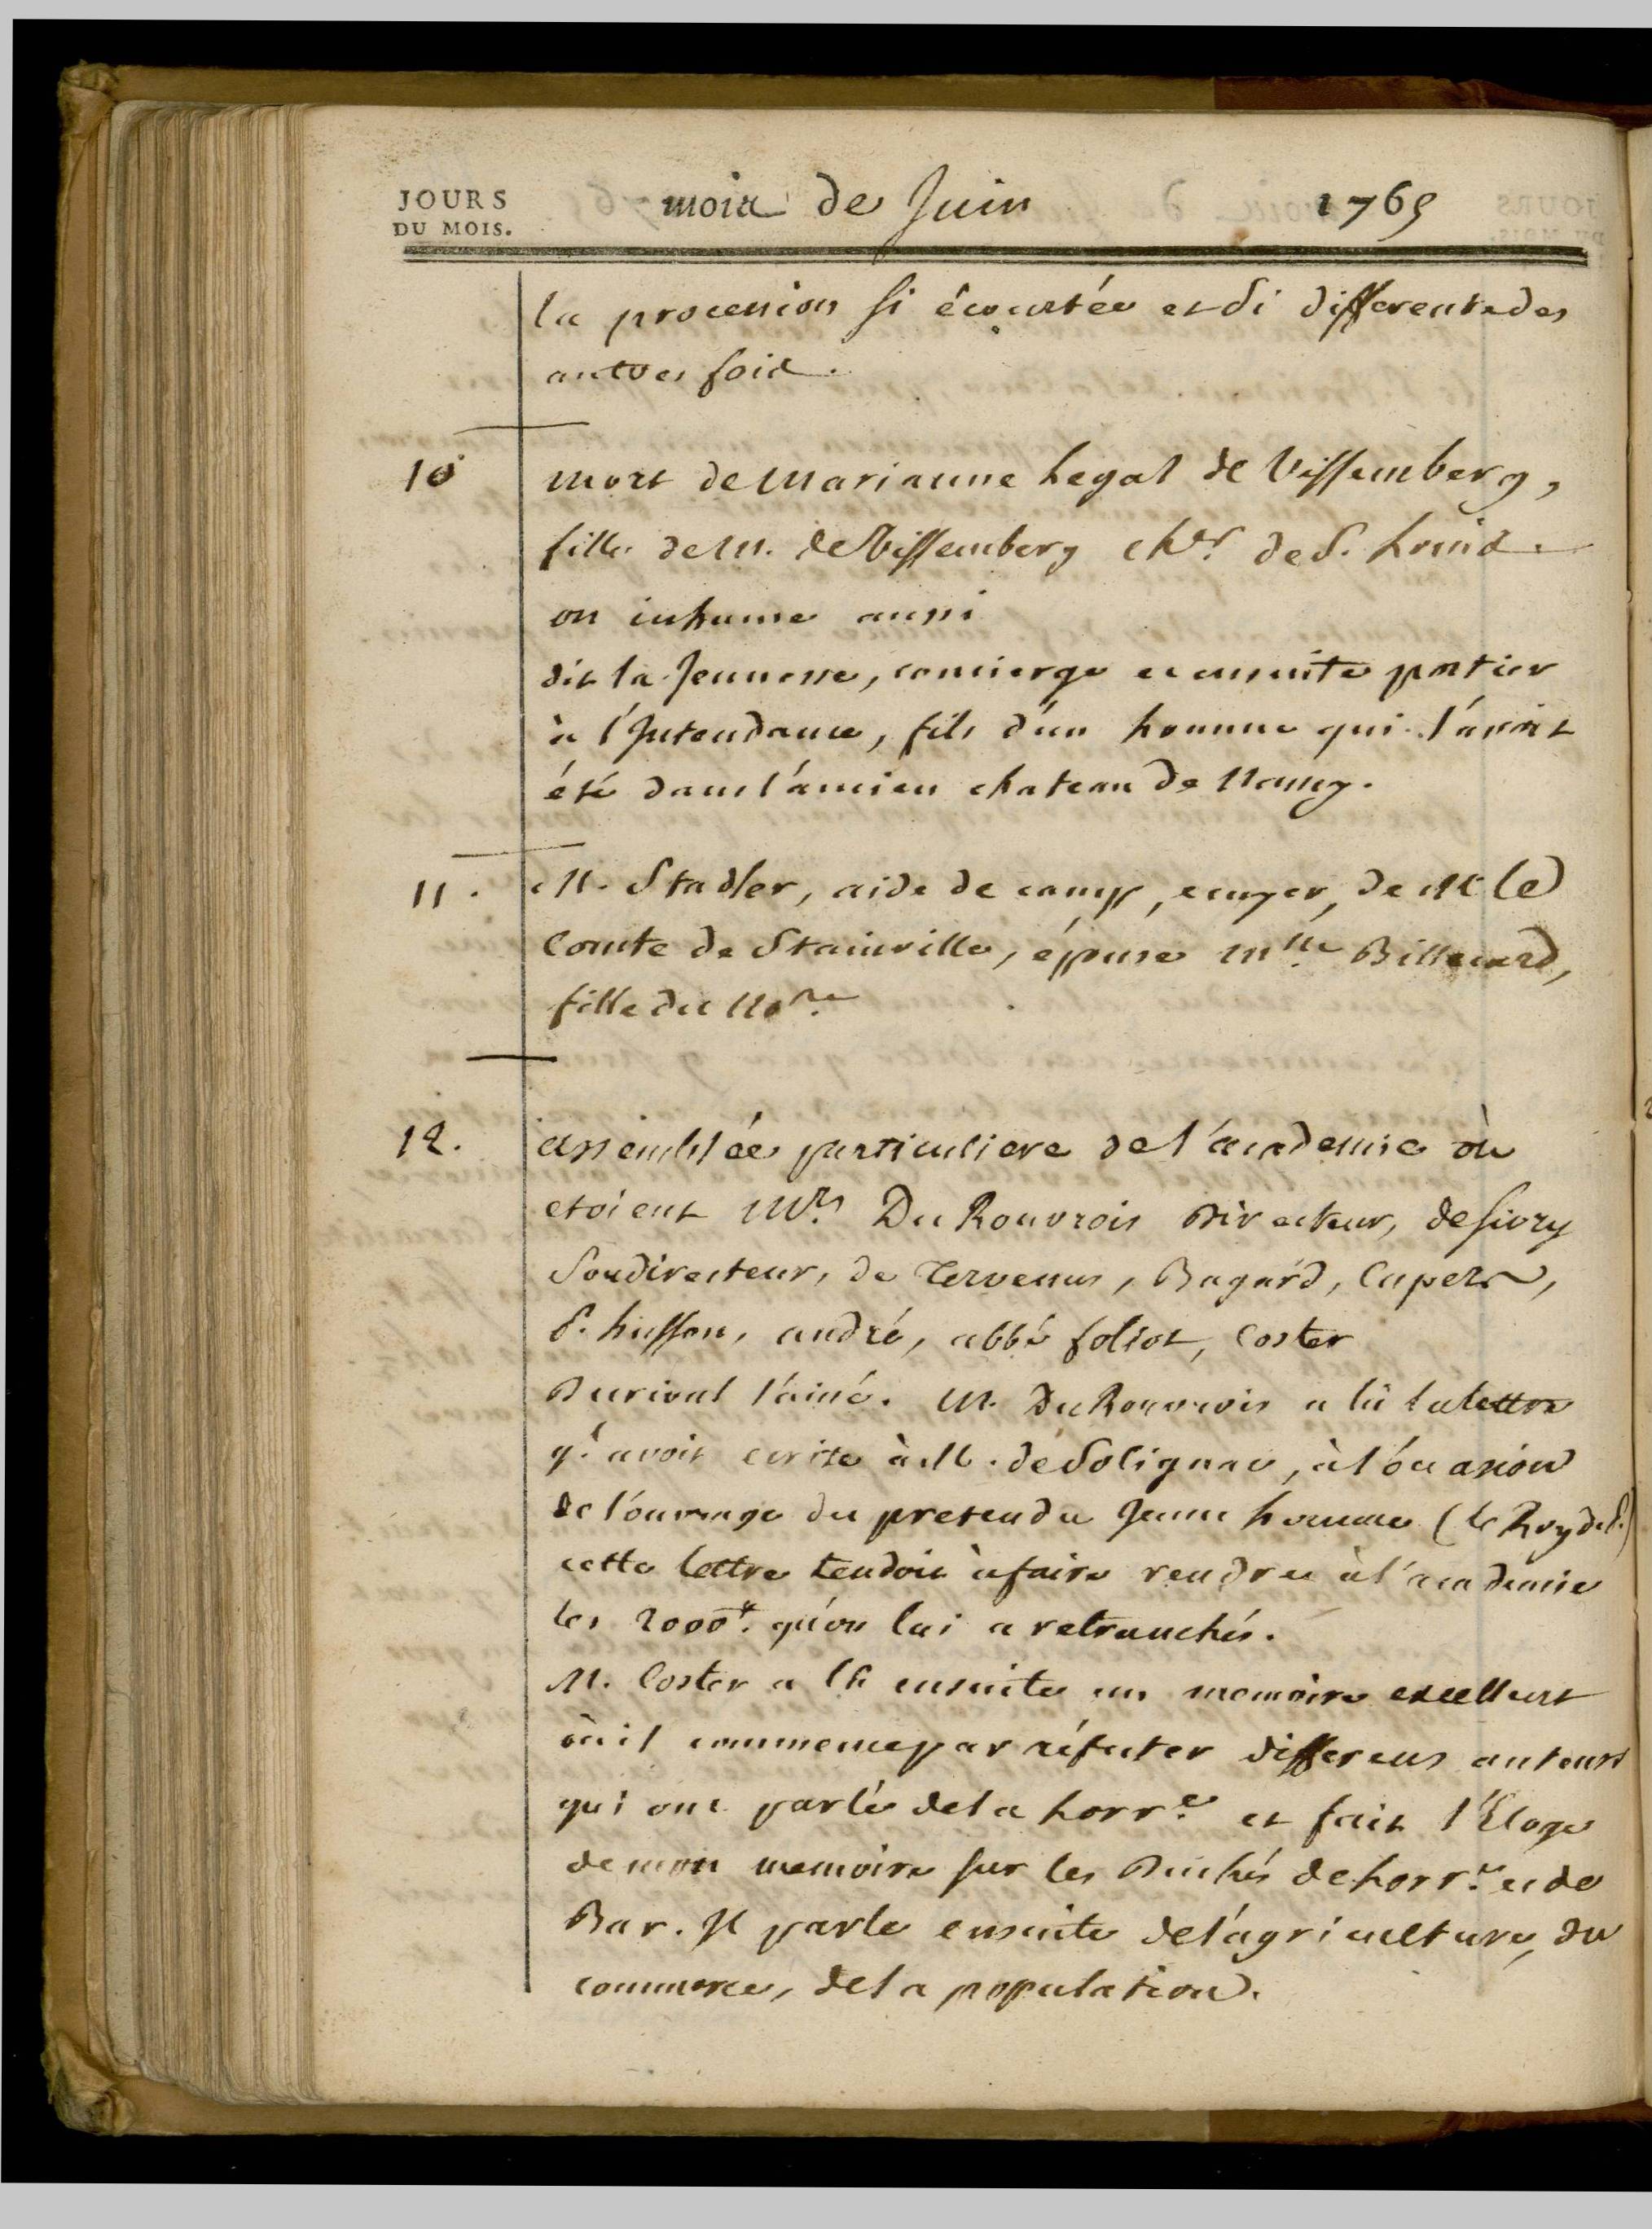 JOURS
DU MOIS.
mois de Juin 1765
la procession si écourtée et si differente des
autres fois.
10 mort de Marianne Legal de Vissemberg,
fille de M. de Vissemberg cher. de S. Louis.
on inhume aussi
dit la Jeunesse, concierge et ensuite portier
à l'Intendance, fils d'un homme qui l'avoit
été dans l'ancien chateau de Nancy.
11. M. Stadler, aide de camp, ecuyer, de M. le
Comte de Stainville, épouse Mlle. Billecard,
fille du Nore.
12. assemblée particuliere de l'academie où
etoient Mrs. Du Rouvrois Directeur, de Sivry
Soudirecteur, de Tervenus, Bagard, Cupers,
P. husson, andré, abbé foliot, Coster
Durival l'ainé. M. Du Rouvrois a lû la lettre
q'. avoit ecrite à M. de Solignac, à l'occasion
de l'ouvrage du pretendu Jeune homme (le Roy de P.)
cette lettre tendoit à faire rendre à l'academie
les 2000#. qu'on lui a retranchés.
M. Coster a lû ensuite un memoire excellent
où il commence par réfuter differens auteurs
qui ont parlé de la Lorre. et fait l'Eloge
de mon memoire sur les Duchés de Lorre. et de
Bar. Il parle ensuite de l'agriculture, du
commerce, de la population.